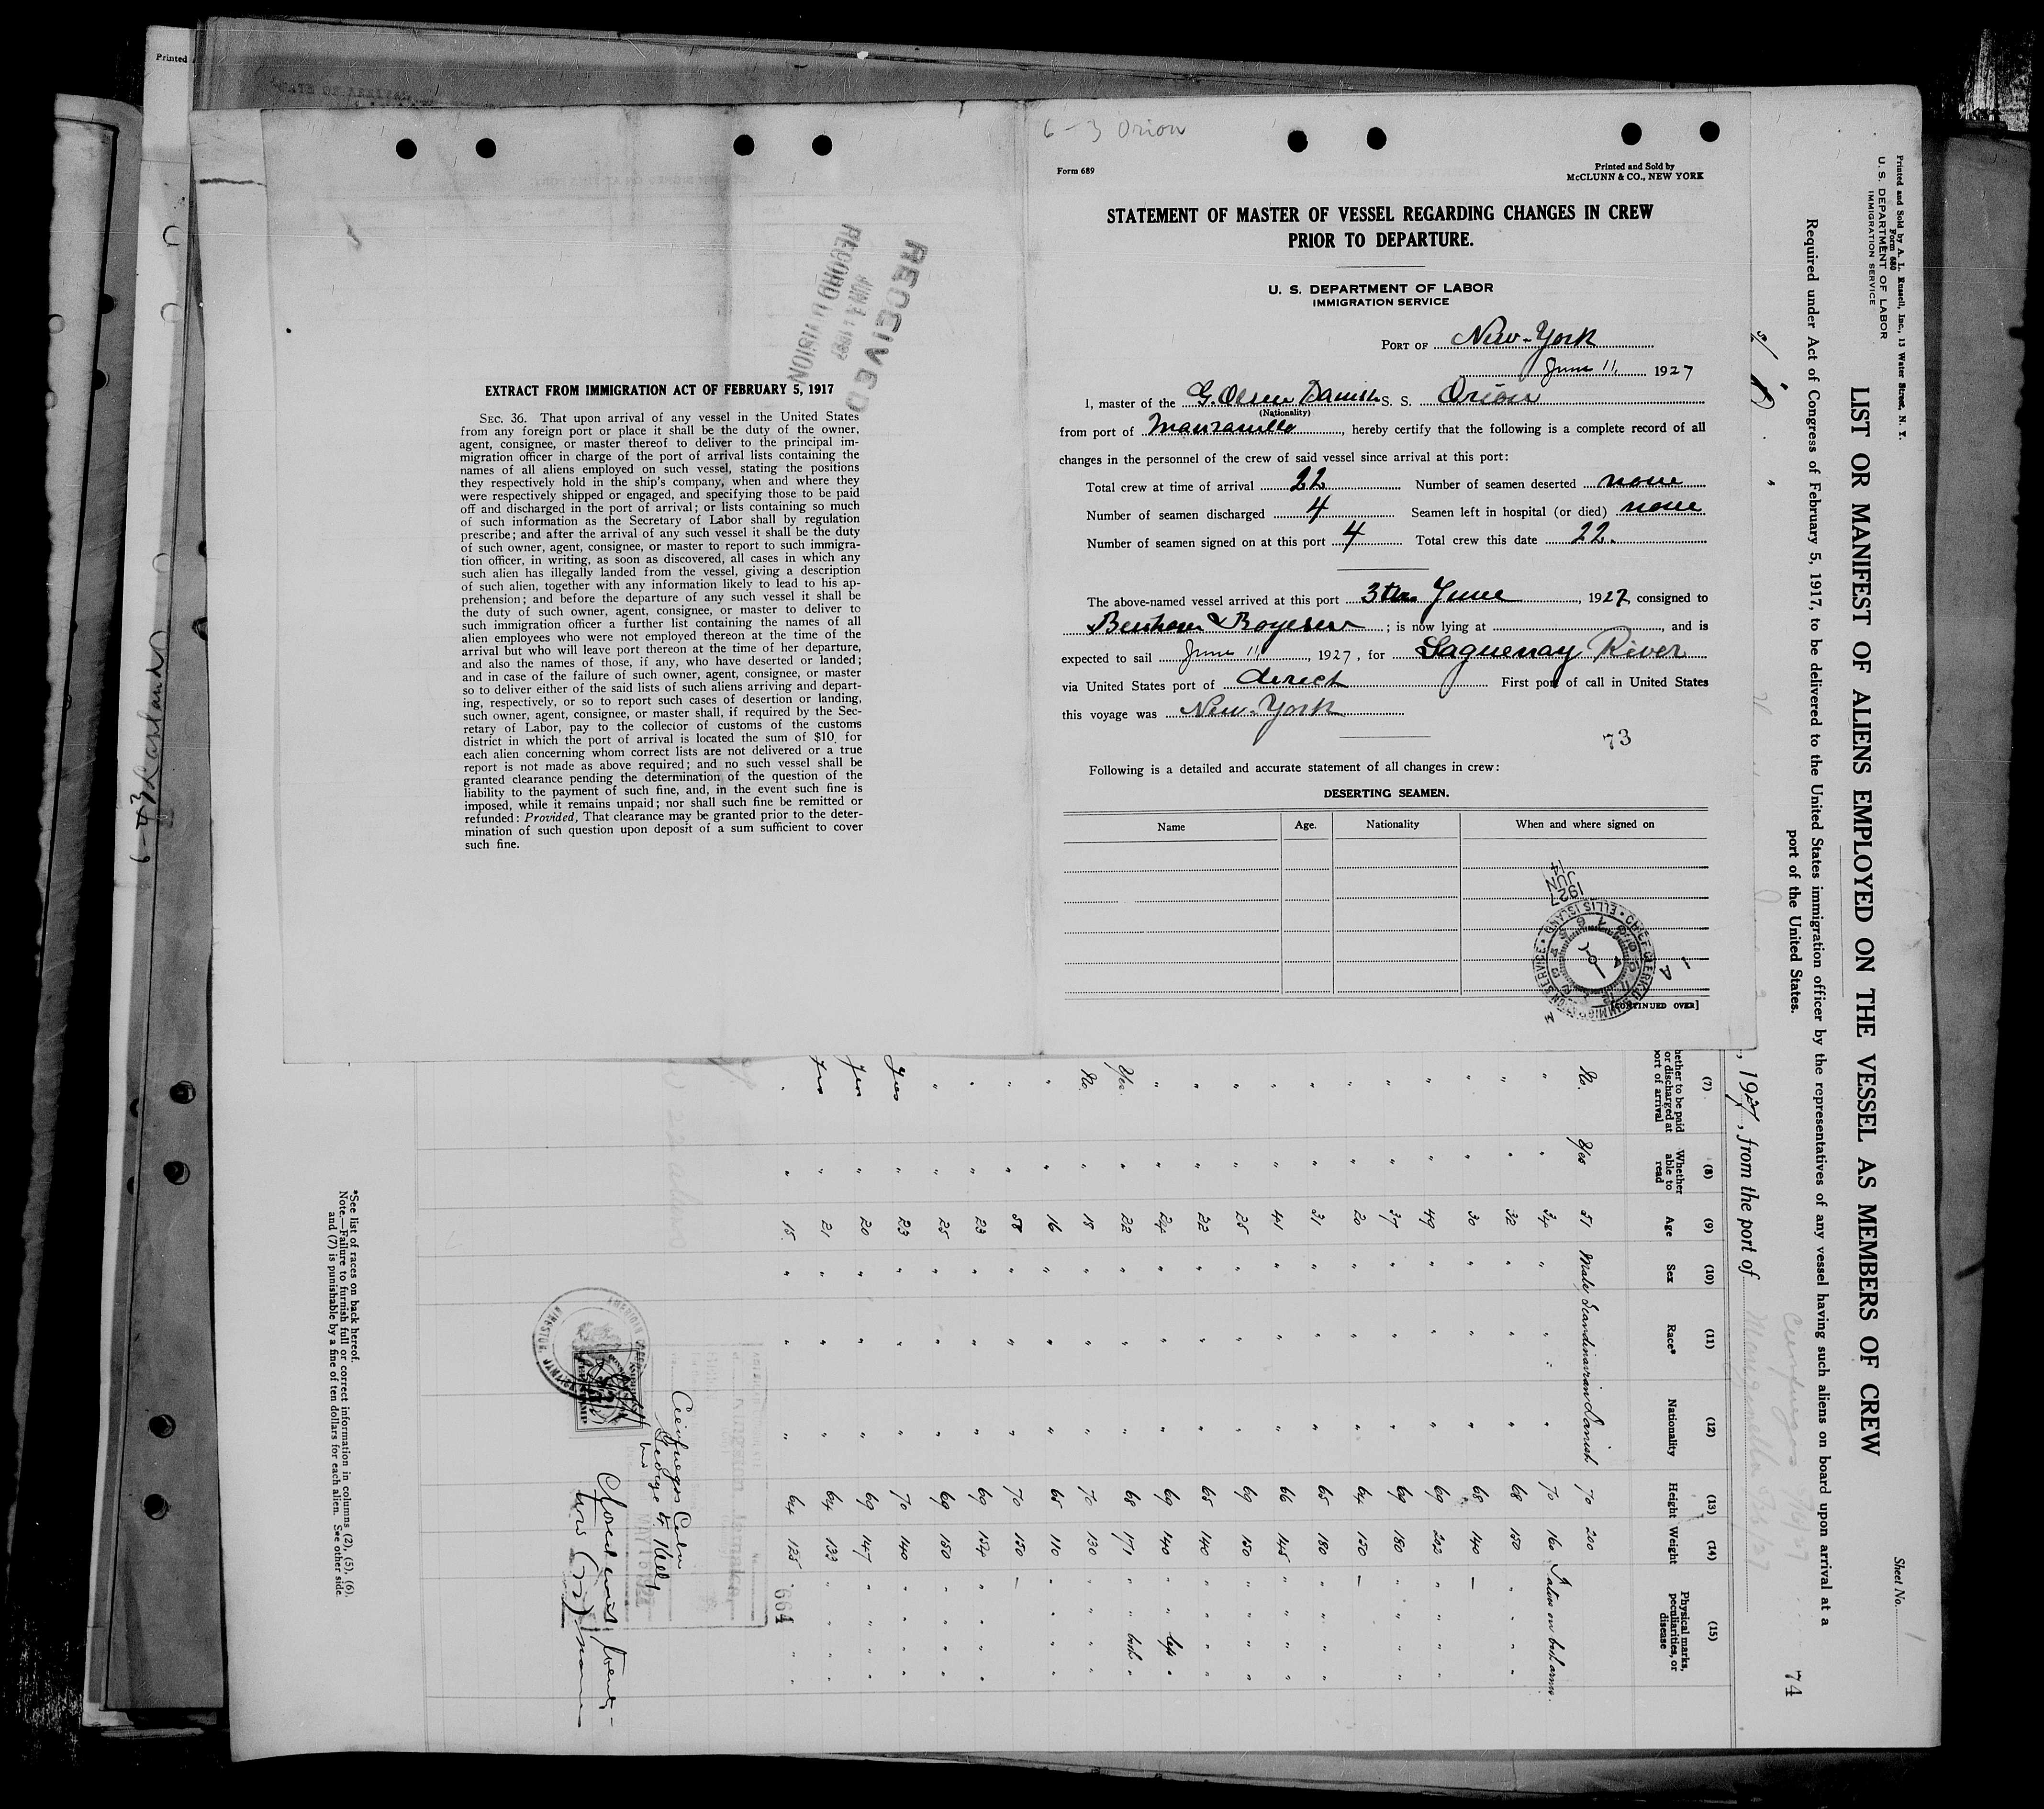 Printed
DATE OF ARRIVAL
6-3 Orion
Form 689
Printed and Sold by
McCLUNN & CO., NEW YORK
STATEMENT OF MASTER OF VESSEL REGARDING CHANGES IN CREW
PRIOR TO DEPARTURE.
U. S. DEPARTMENT OF LABOR
IMMIGRATION SERVICE
PORT OF New-York
June 11, 1927
I, master of the G. Olsen Danish S. S. Orion
(Nationality)
from port of Manzanillo, hereby certify that the following is a complete record of all
changes in the personnel of the crew of said vessel since arrival at this port:
Total crew at time of arrival 22 Number of seamen deserted none
Number of seamen discharged 4 Seamen left in hospital (or died) none
Number of seamen signed on at this port 4 Total crew this date 22.
The above-named vessel arrived at this port 3th June, 1927, consigned to
Benham & Boyesen; is now lying at , and is
expected to sail June 11, 1927, for Saguenay River
via United States port of direct First port of call in United States
this voyage was New-York
73
Following is a detailed and accurate statement of all changes in crew:
DESERTING SEAMEN.
Name Age. Nationality When and where signed on
1927
JUN
14
[CONTINUED OVER]
RECEIVED
RECORD DIVISION
EXTRACT FROM IMMIGRATION ACT OF FEBRUARY 5, 1917
SEC. 36. That upon arrival of any vessel in the United States
from any foreign port or place it shall be the duty of the owner,
agent, consignee, or master thereof to deliver to the principal im-
migration officer in charge of the port of arrival lists containing the
names of all aliens employed on such vessel, stating the positions
they respectively hold in the ship's company, when and where they
were respectively shipped or engaged, and specifying those to be paid
off and discharged in the port of arrival; or lists containing so much
of such information as the Secretary of Labor shall by regulation
prescribe; and after the arrival of any such vessel it shall be the duty
of such owner, agent, consignee, or master to report to such immigra-
tion officer, in writing, as soon as discovered, all cases in which any
such alien has illegally landed from the vessel, giving a description
of such alien, together with any information likely to lead to his ap-
prehension; and before the departure of any such vessel it shall be
the duty of such owner, agent, consignee, or master to deliver to
such immigration officer a further list containing the names of all
alien employees who were not employed thereon at the time of the
arrival but who will leave port thereon at the time of her departure,
and also the names of those, if any, who have deserted or landed;
and in case of the failure of such owner, agent, consignee, or master
so to deliver either of the said lists of such aliens arriving and depart-
ing, respectively, or so to report such cases of desertion or landing,
such owner, agent, consignee, or master shall, if required by the Sec-
retary of Labor, pay to the collector of customs of the customs
district in which the port of arrival is located the sum of $10 for
each alien concerning whom correct lists are not delivered or a true
report is not made as above required; and no such vessel shall be
granted clearance pending the determination of the question of the
liability to the payment of such fine, and, in the event such fine is
imposed, while it remains unpaid; nor shall such fine be remitted or
refunded: Provided, That clearance may be granted prior to the deter-
mination of such question upon deposit of a sum sufficient to cover
such fine.
Printed and Sold by A. L. Russell, Inc., 13 Water Street, N. Y.
Form 680
U. S. DEPARTMENT OF LABOR
IMMIGRATION SERVICE
Sheet No. 1
LIST OR MANIFEST OF ALIENS EMPLOYED ON THE VESSEL AS MEMBERS OF CREW
Required under Act of Congress of February 5, 1917, to be delivered to the United States immigration officer by the representatives of any vessel having such aliens on board upon arrival at a
port of the United States.
74
, 1927, from the port of
(7) (8) (9) (10) (11) (12) (13) (14) (15)
Whether able to read Age Sex Race* Nationality Height Weight Physical marks, peculiarities, or disease
No. Yes 51 Male Scandinavian Danish 70 200
" " 34 " " " 70 160 Tatus on both arms.
" " 32 " " " 68 150 " "
" " 30 " " " 68 140 —
" " 49 " " " 69 202 " " "
" " 37 " " " 69 180 " " "
" " 20 " " " 64 150 —
" " 31 " " " 65 180 " " "
" " 41 " " " 66 145 " " "
" " 25 " " " 69 150 " " "
" " 22 " " " 65 140 " " "
" " 24 " " " 69 140 " " left "
Yes. " 22 " " " 68 171 " " both "
No. " 18 " " " 70 130 " " "
" " 16 " " " 65 110 " " "
" " 58 " " " 70 150 —
" " 23 " " " 69 154 " " "
" " 25 " " " 69 150 " " "
Yes " 23 " " " 70 140 " " "
Yes " 20 " " " 69 147 " " "
Yes " 21 " " " 64 133 " " "
" " 15 " " " 64 125 " " "
664
Cienfuegos Cuba
Closed with twenty-
two (22) names
*See list of races on back hereof.
Note.—Failure to furnish full or correct information in columns (2), (5), (6),
and (7) is punishable by a fine of ten dollars for each alien. See other side.